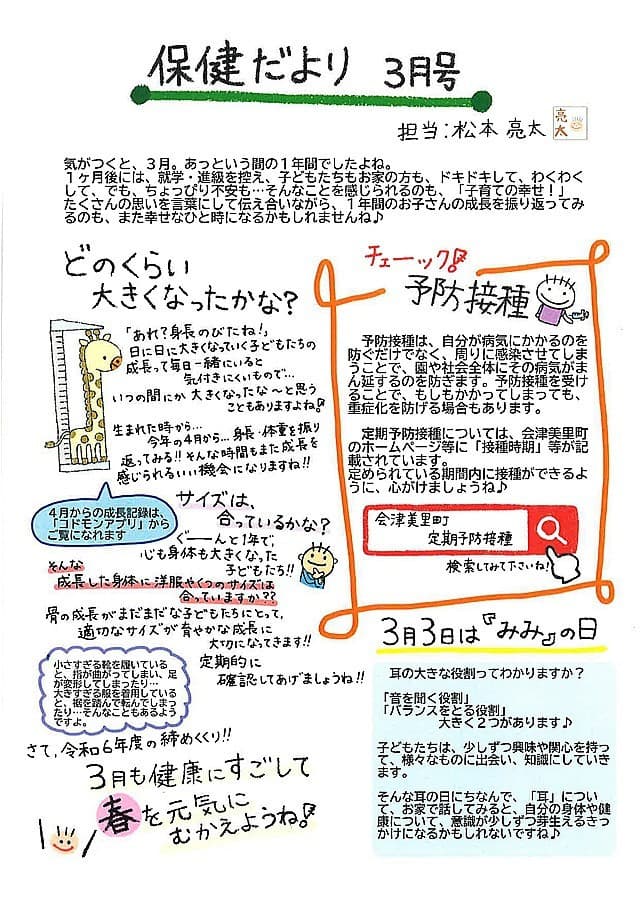 保健だより 3月号
担当:松本 亮太
亮太
気がつくと、３月。あっという間の１年間でしたよね。
１ヶ月後には、就学・進級を控え、子どもたちもお家の方も、ドキドキして、わくわく
して、でも、ちょっぴり不安も…そんなことを感じられるのも、「子育ての幸せ！」
たくさんの思いを言葉にして伝え合いながら、１年間のお子さんの成長を振り返ってみ
るのも、また幸せなひと時になるかもしれませんね♪
どのくらい
大きくなったかな?
「あれ?身長のびたね!」
日に日に大きくなっていく子どもたちの
成長って毎日一緒にいると
気付きにくいもので…
いつの間にか大きくなったな〜と思う
こともありますよね!
生まれた時から…
今年の4月から…身長・体重を振り
返ってみる!!そんな時間もまた成長を
感じられるいい機会になりますね!!
４月からの成長記録は、
「コドモンアプリ」から
ご覧になれます
サイズは、
合っているかな?
ぐーんと1年で、
心も身体も大きくなった
子どもたち!!
そんな
成長した身体に洋服やくつのサイズは
合っていますか??
骨の成長がまだまだな子どもたちにとって、
適切なサイズが育やかな成長に
大切になってきます!!
定期的に
確認してあげましょうね!!
小さすぎる靴を履いている
と、指が曲がってしまい、足
が変形してしまったり…
大きすぎる服を着用している
と、裾を踏んで転んでしまっ
たり…そんなこともあるよう
ですよ。
さて、令和6年度の締めくくり!!
3月も健康にすごして
春を元気に
むかえようね!
チェーック!
予防接種
予防接種は、自分が病気にかかるのを
防ぐだけでなく、周りに感染させてしま
うことで、園や社会全体にその病気がま
ん延するのを防ぎます。予防接種を受け
ることで、もしもかかってしまっても、
重症化を防げる場合もあります。
定期予防接種については、会津美里町
のホームページ等に「接種時期」等が記
載されています。
定められている期間内に接種ができるよ
うに、心がけましょうね♪
会津美里町
定期予防接種
検索してみて下さいね!
3月3日は『みみ』の日
耳の大きな役割ってわかりますか？
「音を聞く役割」
「バランスをとる役割」
大きく２つがあります♪
子どもたちは、少しずつ興味や関心を持っ
て、様々なものに出会い、知識にしていき
ます。
そんな耳の日にちなんで、「耳」につい
て、お家で話してみると、自分の身体や健
康について、意識が少しずつ芽生えるきっ
かけになるかもしれないですね♪